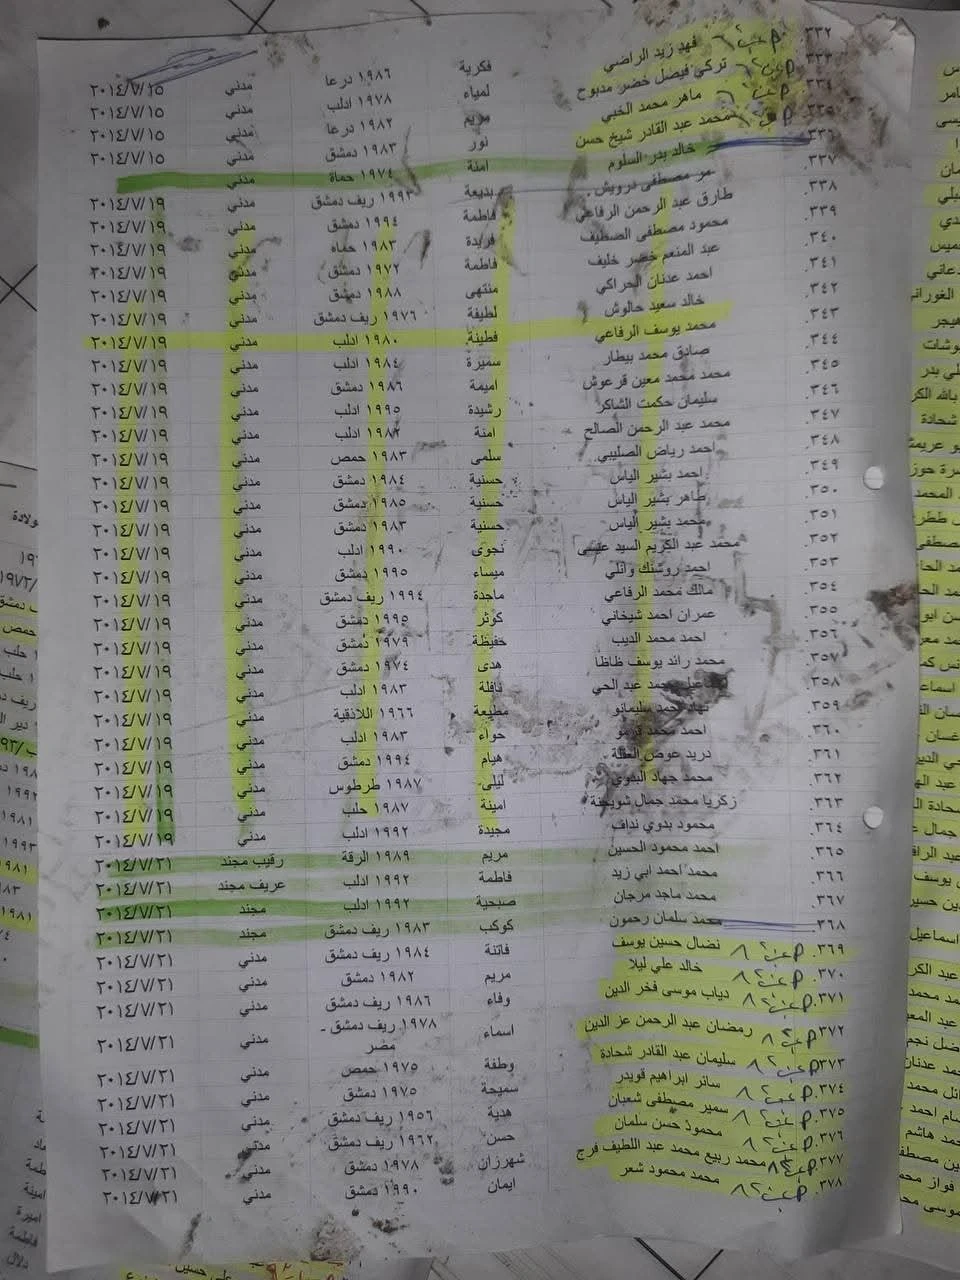 ٣٣٢. فهد زيد الراضي فكرية ١٩٨٦ درعا مدني ٢٠١٤/٧/١٥
٣٣٣. تركي فيصل خضر مدبوح لمياء ١٩٧٨ ادلب مدني ٢٠١٤/٧/١٥
٣٣٤. ماهر محمد الخبي مريم ١٩٨٢ درعا مدني ٢٠١٤/٧/١٥
٣٣٥. محمد عبد القادر شيخ حسن نور ١٩٨٣ دمشق مدني ٢٠١٤/٧/١٥
٣٣٦. خالد بدر السلوم امنة ١٩٧٤ حماة مدني
٣٣٧. مصطفى درويش بديعة ١٩٩٣ ريف دمشق مدني ٢٠١٤/٧/١٩
٣٣٨. طارق عبد الرحمن الرفاعي فاطمة ١٩٩٤ دمشق مدني ٢٠١٤/٧/١٩
٣٣٩. محمود مصطفى الصطيف فريدة ١٩٨٣ حماه مدني ٢٠١٤/٧/١٩
٣٤٠. عبد المنعم خضر خليف فاطمة ١٩٧٢ دمشق مدني ٢٠١٤/٧/١٩
٣٤١. احمد عدنان الحراكي منتهى ١٩٨٨ دمشق مدني ٢٠١٤/٧/١٩
٣٤٢. خالد سعيد حالوش لطيفة ١٩٧٦ ريف دمشق مدني ٢٠١٤/٧/١٩
٣٤٣. محمد يوسف الرفاعي فطينة ١٩٨٠ ادلب مدني ٢٠١٤/٧/١٩
٣٤٤. صادق محمد بيطار سميرة ١٩٨٤ ادلب مدني ٢٠١٤/٧/١٩
٣٤٥. محمد محمد معين قرعوش اميمة ١٩٨٦ دمشق مدني ٢٠١٤/٧/١٩
٣٤٦. سليمان حكمت الشاكر رشيدة ١٩٩٥ ادلب مدني ٢٠١٤/٧/١٩
٣٤٧. محمد عبد الرحمن الصالح امنة ١٩٨٢ ادلب مدني ٢٠١٤/٧/١٩
٣٤٨. احمد رياض الصليبي سلمى ١٩٨٣ حمص مدني ٢٠١٤/٧/١٩
٣٤٩. احمد بشير الياس حسنية ١٩٨٤ دمشق مدني ٢٠١٤/٧/١٩
٣٥٠. طاهر بشير الياس حسنية ١٩٨٥ دمشق مدني ٢٠١٤/٧/١٩
٣٥١. محمد بشير الياس حسنية ١٩٨٣ دمشق مدني ٢٠١٤/٧/١٩
٣٥٢. محمد عبد الكريم السيد عيسى نجوى ١٩٩٠ ادلب مدني ٢٠١٤/٧/١٩
٣٥٣. احمد روشنك وانلي ميساء ١٩٩٥ دمشق مدني ٢٠١٤/٧/١٩
٣٥٤. مالك محمد الرفاعي ماجدة ١٩٩٤ ريف دمشق مدني ٢٠١٤/٧/١٩
٣٥٥. عمران احمد شيخاني كوثر ١٩٩٥ دمشق مدني ٢٠١٤/٧/١٩
٣٥٦. احمد محمد الديب حفيظة ١٩٧٩ دمشق مدني ٢٠١٤/٧/١٩
٣٥٧. محمد رائد يوسف ظاظا هدى ١٩٧٤ دمشق مدني ٢٠١٤/٧/١٩
٣٥٨. محمد عبد الحي نافلة ١٩٨٣ ادلب مدني ٢٠١٤/٧/١٩
٣٥٩. نهاد احمد سليمانو مطيعة ١٩٦٦ اللاذقية مدني ٢٠١٤/٧/١٩
٣٦٠. احمد محمد قرمو حواء ١٩٨٣ ادلب مدني ٢٠١٤/٧/١٩
٣٦١. دريد عوض العلة هيام ١٩٩٤ دمشق مدني ٢٠١٤/٧/١٩
٣٦٢. محمد جهاد البدوي ليلى ١٩٨٧ طرطوس مدني ٢٠١٤/٧/١٩
٣٦٣. زكريا محمد جمال شويحنة امينة ١٩٨٧ حلب مدني ٢٠١٤/٧/١٩
٣٦٤. محمود بدوي نداف مجيدة ١٩٩٢ ادلب مدني ٢٠١٤/٧/١٩
٣٦٥. احمد محمود الحسين مريم ١٩٨٩ الرقة رقيب مجند ٢٠١٤/٧/٢١
٣٦٦. محمد احمد ابي زيد فاطمة ١٩٩٢ ادلب عريف مجند ٢٠١٤/٧/٢١
٣٦٧. محمد ماجد مرجان صبحية ١٩٩٢ ادلب مجند ٢٠١٤/٧/٢١
٣٦٨. محمد سلمان رحمون كوكب ١٩٨٣ ريف دمشق مجند ٢٠١٤/٧/٢١
٣٦٩. نضال حسين يوسف فاتنة ١٩٨٤ ريف دمشق مدني ٢٠١٤/٧/٢١
٣٧٠. خالد علي ليلا مريم ١٩٨٢ دمشق مدني ٢٠١٤/٧/٢١
٣٧١. دياب موسى فخر الدين وفاء ١٩٨٦ ريف دمشق مدني ٢٠١٤/٧/٢١
٣٧٢. رمضان عبد الرحمن عز الدين اسماء ١٩٧٨ ريف دمشق - مدني ٢٠١٤/٧/٢١
مضر
٣٧٣. سليمان عبد القادر شحادة وطفة ١٩٧٥ حمص مدني ٢٠١٤/٧/٢١
٣٧٤. سائر ابراهيم قويدر سميحة ١٩٧٥ دمشق مدني ٢٠١٤/٧/٢١
٣٧٥. سمير مصطفى شعبان هدية ١٩٥٦ ريف دمشق مدني ٢٠١٤/٧/٢١
٣٧٦. محمود حسن سلمان حسن ١٩٦٢ ريف دمشق مدني ٢٠١٤/٧/٢١
٣٧٧. محمد ربيع محمد عبد اللطيف فرج شهرزان ١٩٧٨ دمشق مدني ٢٠١٤/٧/٢١
٣٧٨. محمد محمود شعر ايمان ١٩٩٠ دمشق مدني ٢٠١٤/٧/٢١